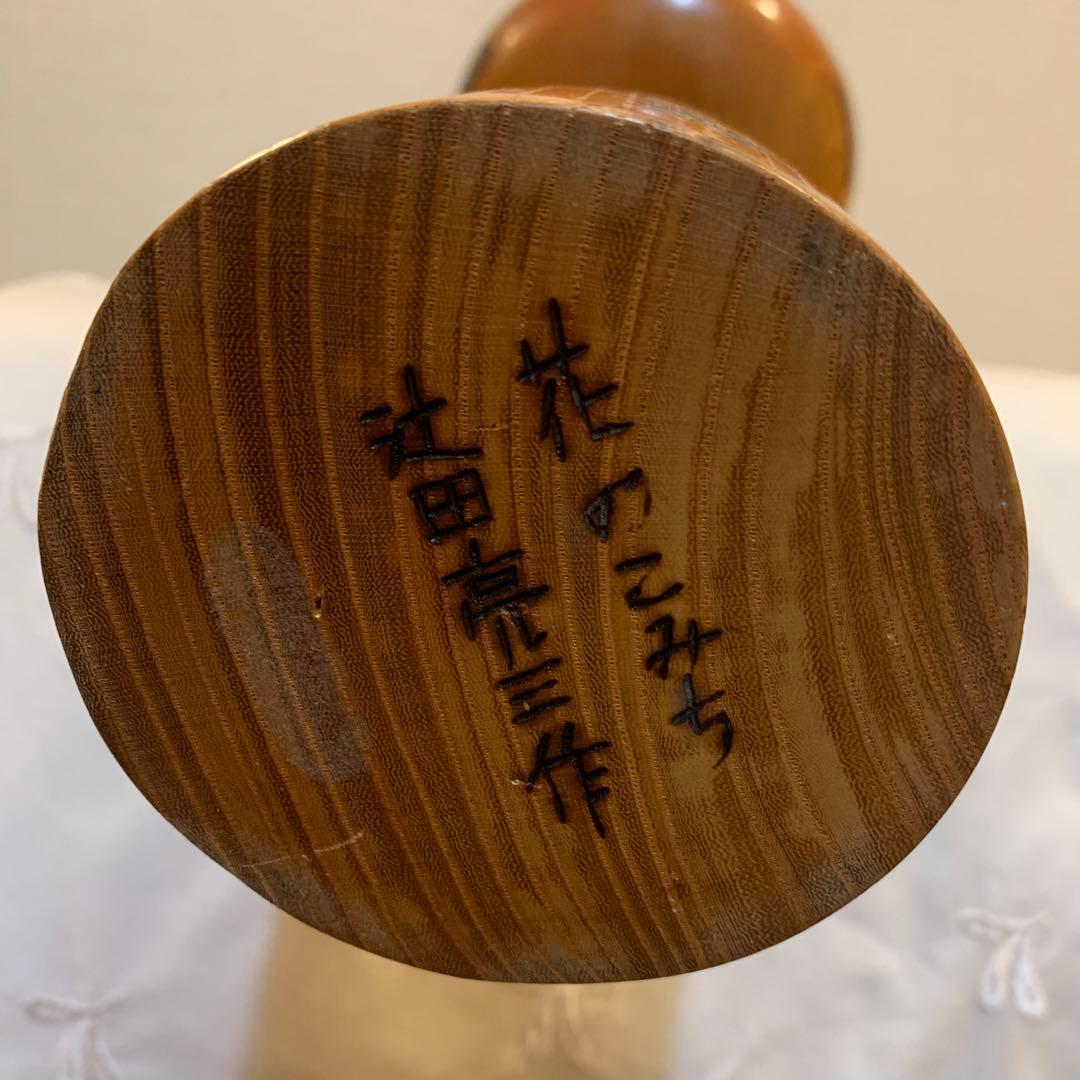 花のこみち
辻田亮三作